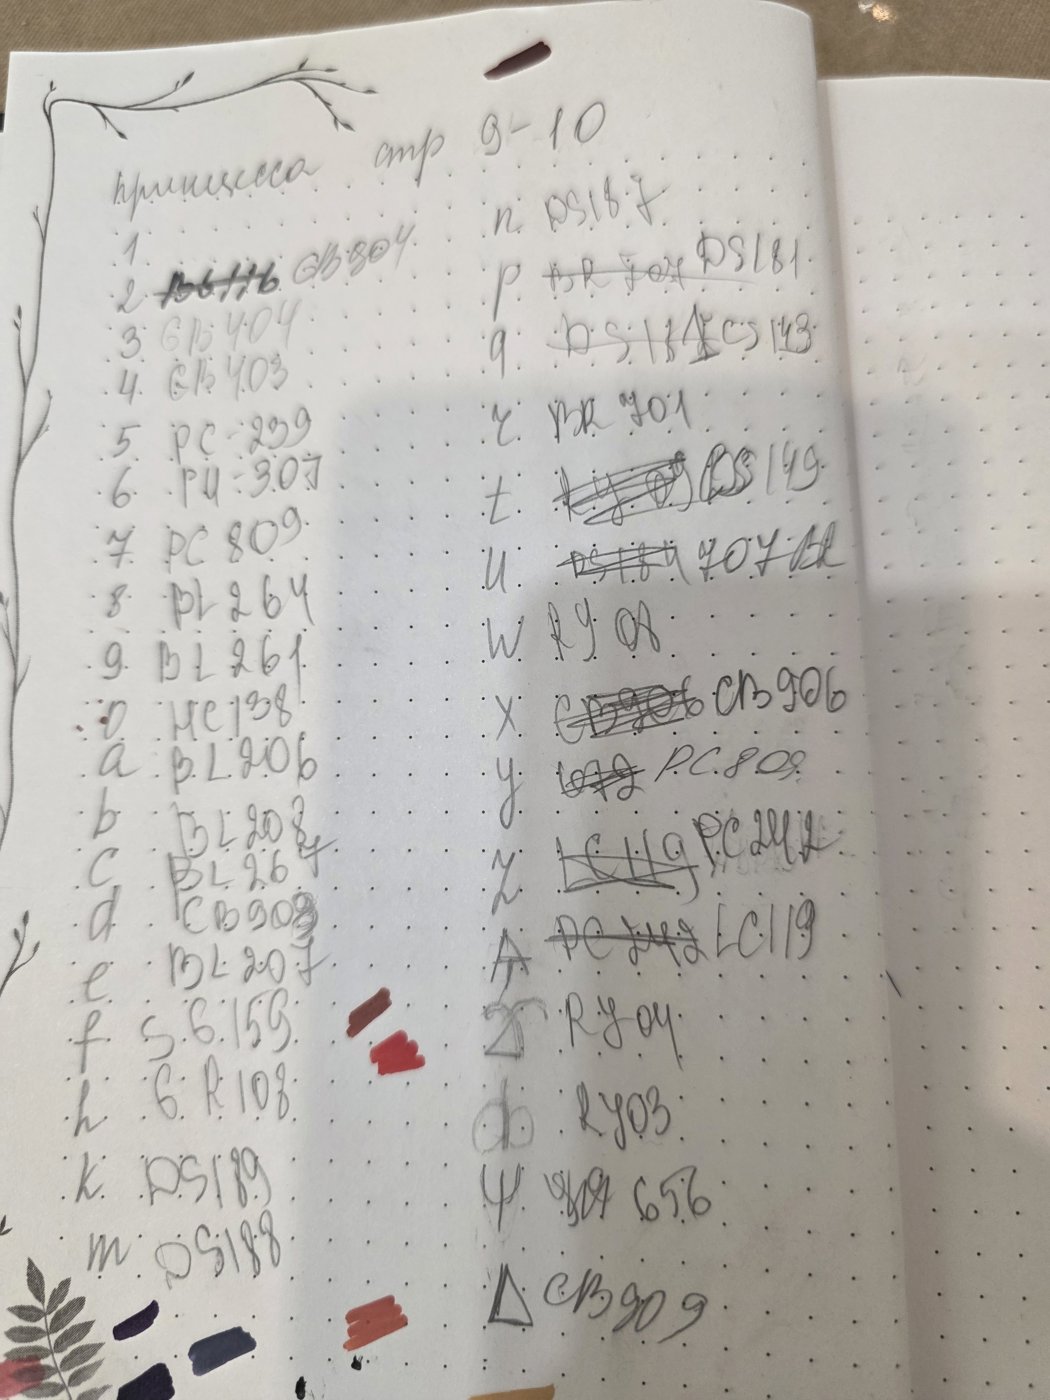 принцесса стр 9-10
1
2 GB804
3 GB404
4 GB403
5 PC-239
6 PU-307
7 PC 809
8 BL 264
9 BL 261
0 HC138
a BL206
b BL208
c BL267
d CB909
e BL207
f SG159
h GR108
k DS189
m DS188
n DS187
p BR 704 DS181
q CS143
r BR 701
t 149
u DS184 707 BR
w RY 08
x CB906 CB906
y PC 809
z LC119 PC242
A PC 242 LC119
RY04
ф RY03
Ψ 656
Δ CB909